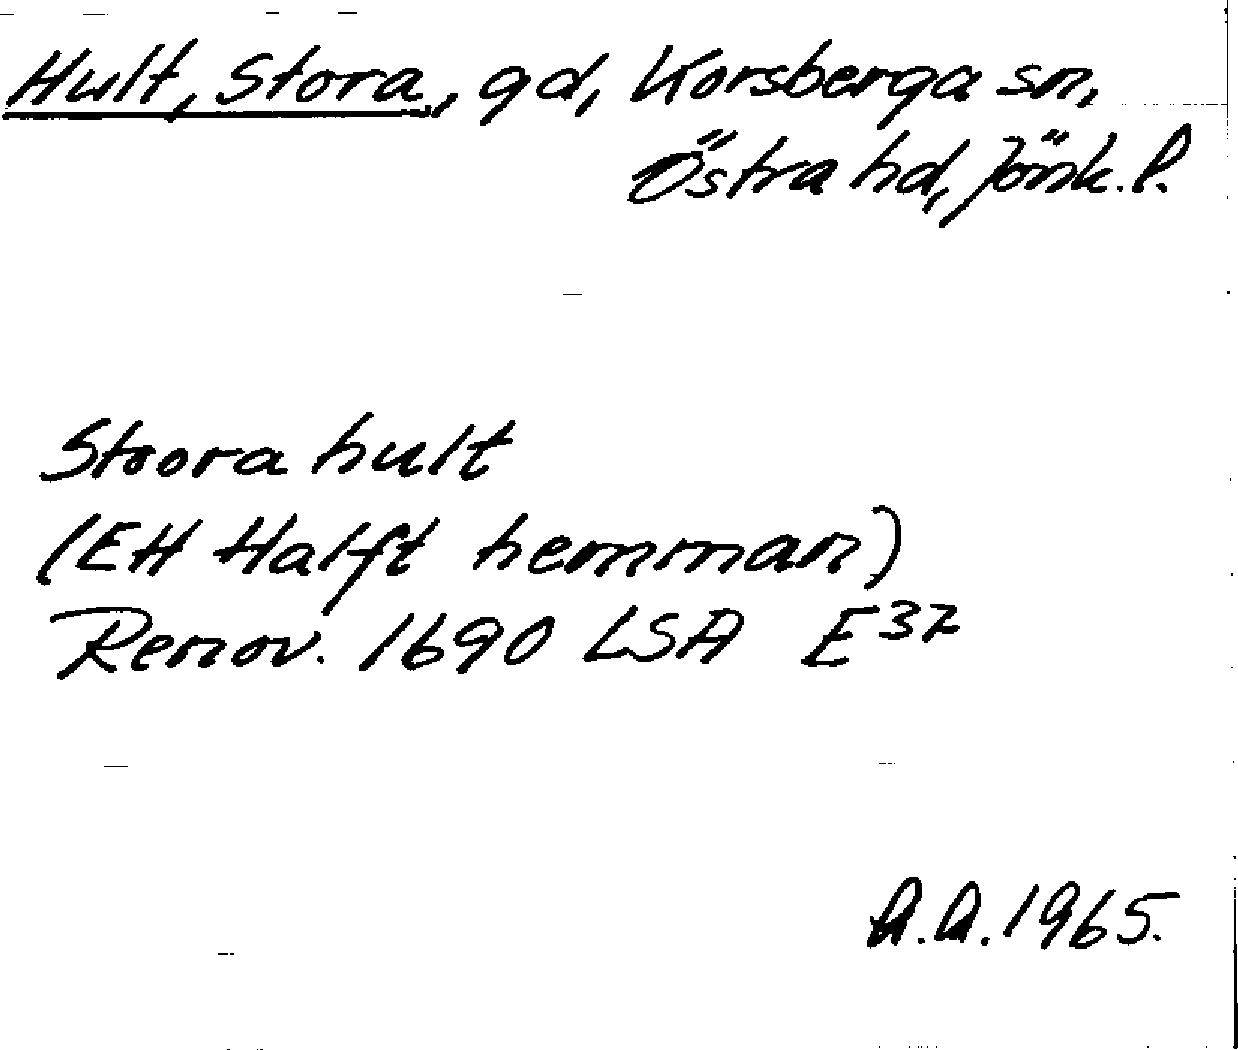 Hult, Stora, gd, Korsberga sn,
Östra hd, Jönk. l.
Stoora hult
(EH Halft hemman)
Renov. 1690 LSA E 37
A.A. 1965.